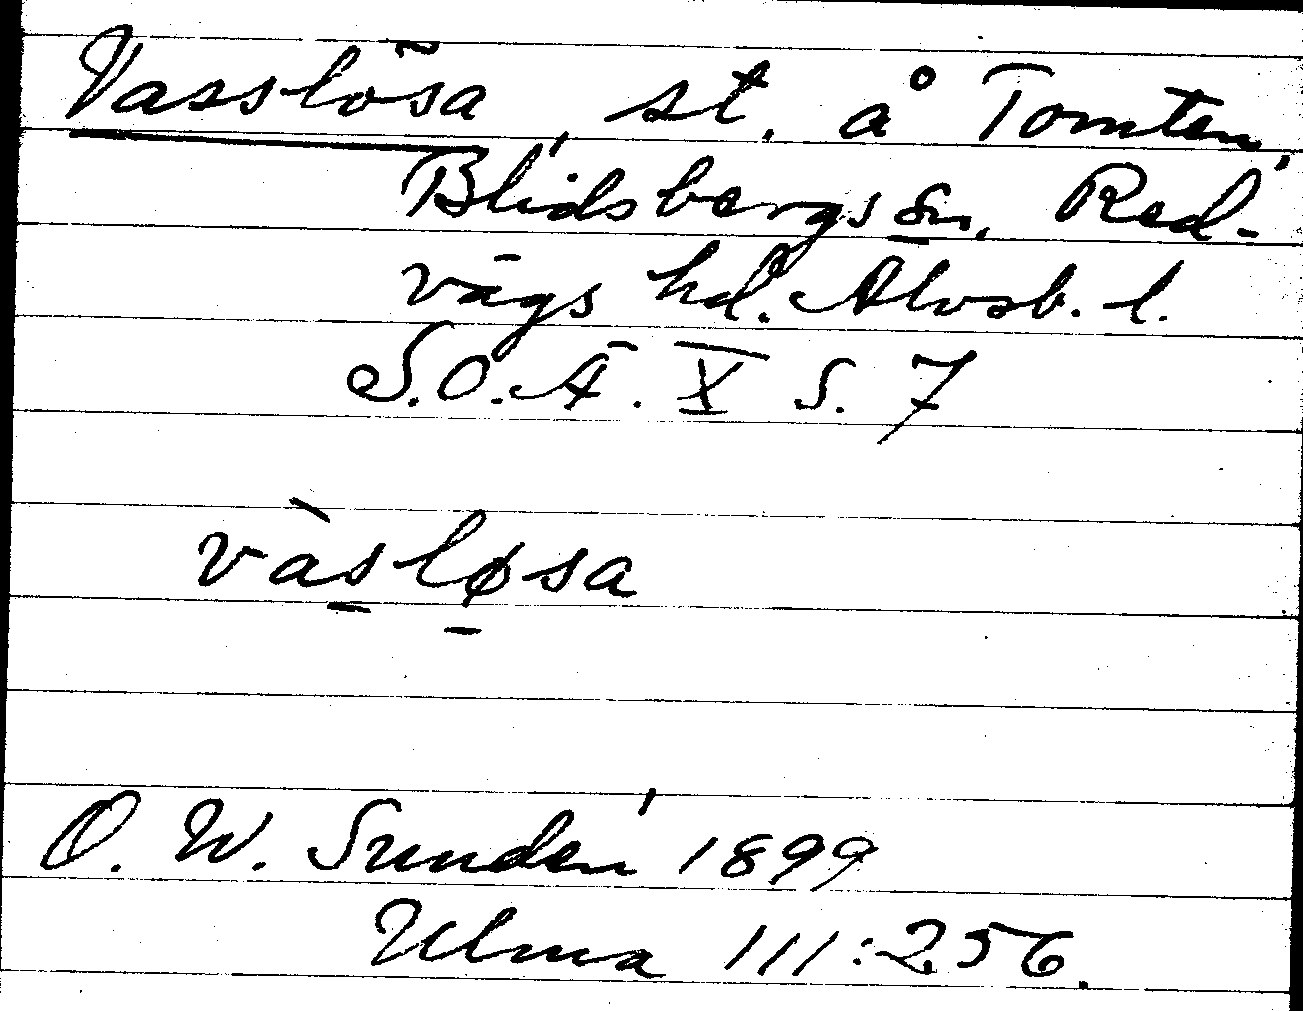 Vasslösa, st. å Tomten,
Blidsbergs sn, Red-
vägs hd. Älvsb. l.
S.O.Ä. X s. 7
vàsløsa
O. W. Sundén 1899
Ulma 111:256.